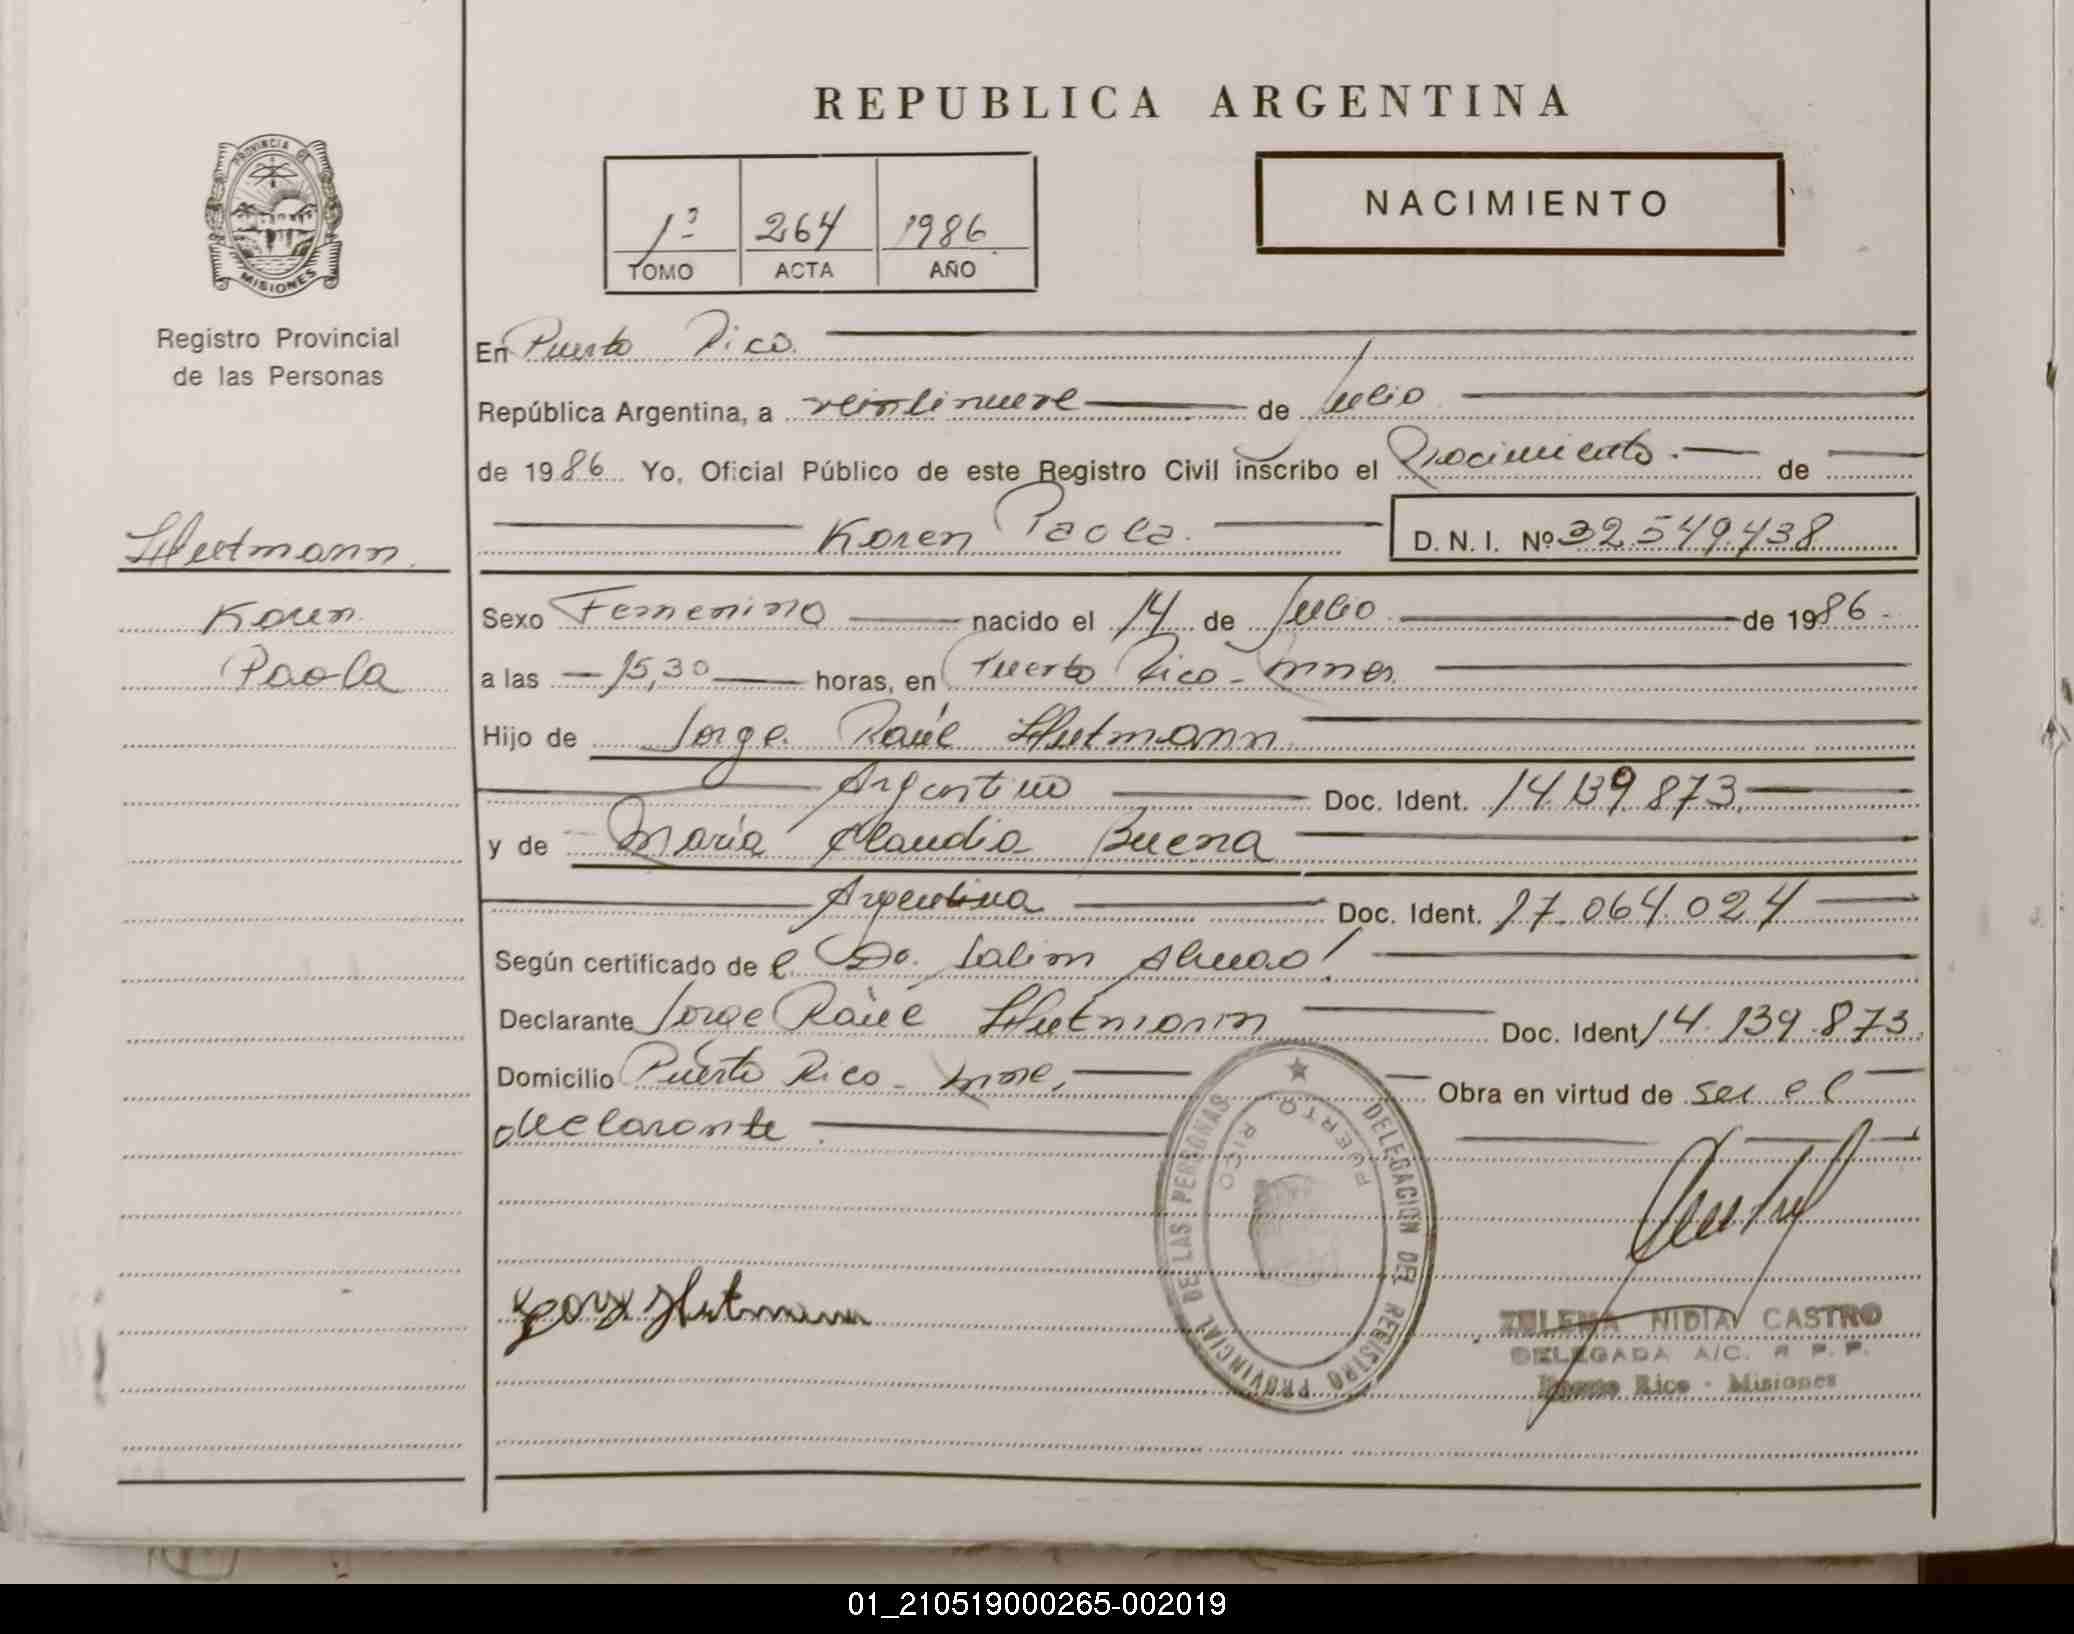 REPUBLICA ARGENTINA
PROVINCIA DE
MISIONES
Registro Provincial
de las Personas
1º 264 1986
TOMO ACTA AÑO
NACIMIENTO
En Puerto Rico.
República Argentina, a veintinueve de Julio
de 1986 Yo, Oficial Público de este Registro Civil inscribo el Nacimiento. de
Karen Paola. D. N. I. Nº 32.549.438
Karen
Paola
Sexo Femenino nacido el 14 de Julio de 1986
a las 15,30 horas, en Puerto Rico - Mnes.
Hijo de Jorge Raúl
Argentino Doc. Ident. 14.139.873
y de María Claudia Buena
Argentina Doc. Ident. 17.064.024
Según certificado del Dr. Salim
Declarante Jorge Raúl Doc. Ident. 14.139.873
Domicilio Puerto Rico - Mnes. Obra en virtud de ser el
declarante.
DELEGACION DEL REGISTRO PROVINCIAL DE LAS PERSONAS
PUERTO RICO
ZULEMA NIDIA CASTRO
DELEGADA A/C. R P. P.
Puerto Rico - Misiones
01_210519000265-002019